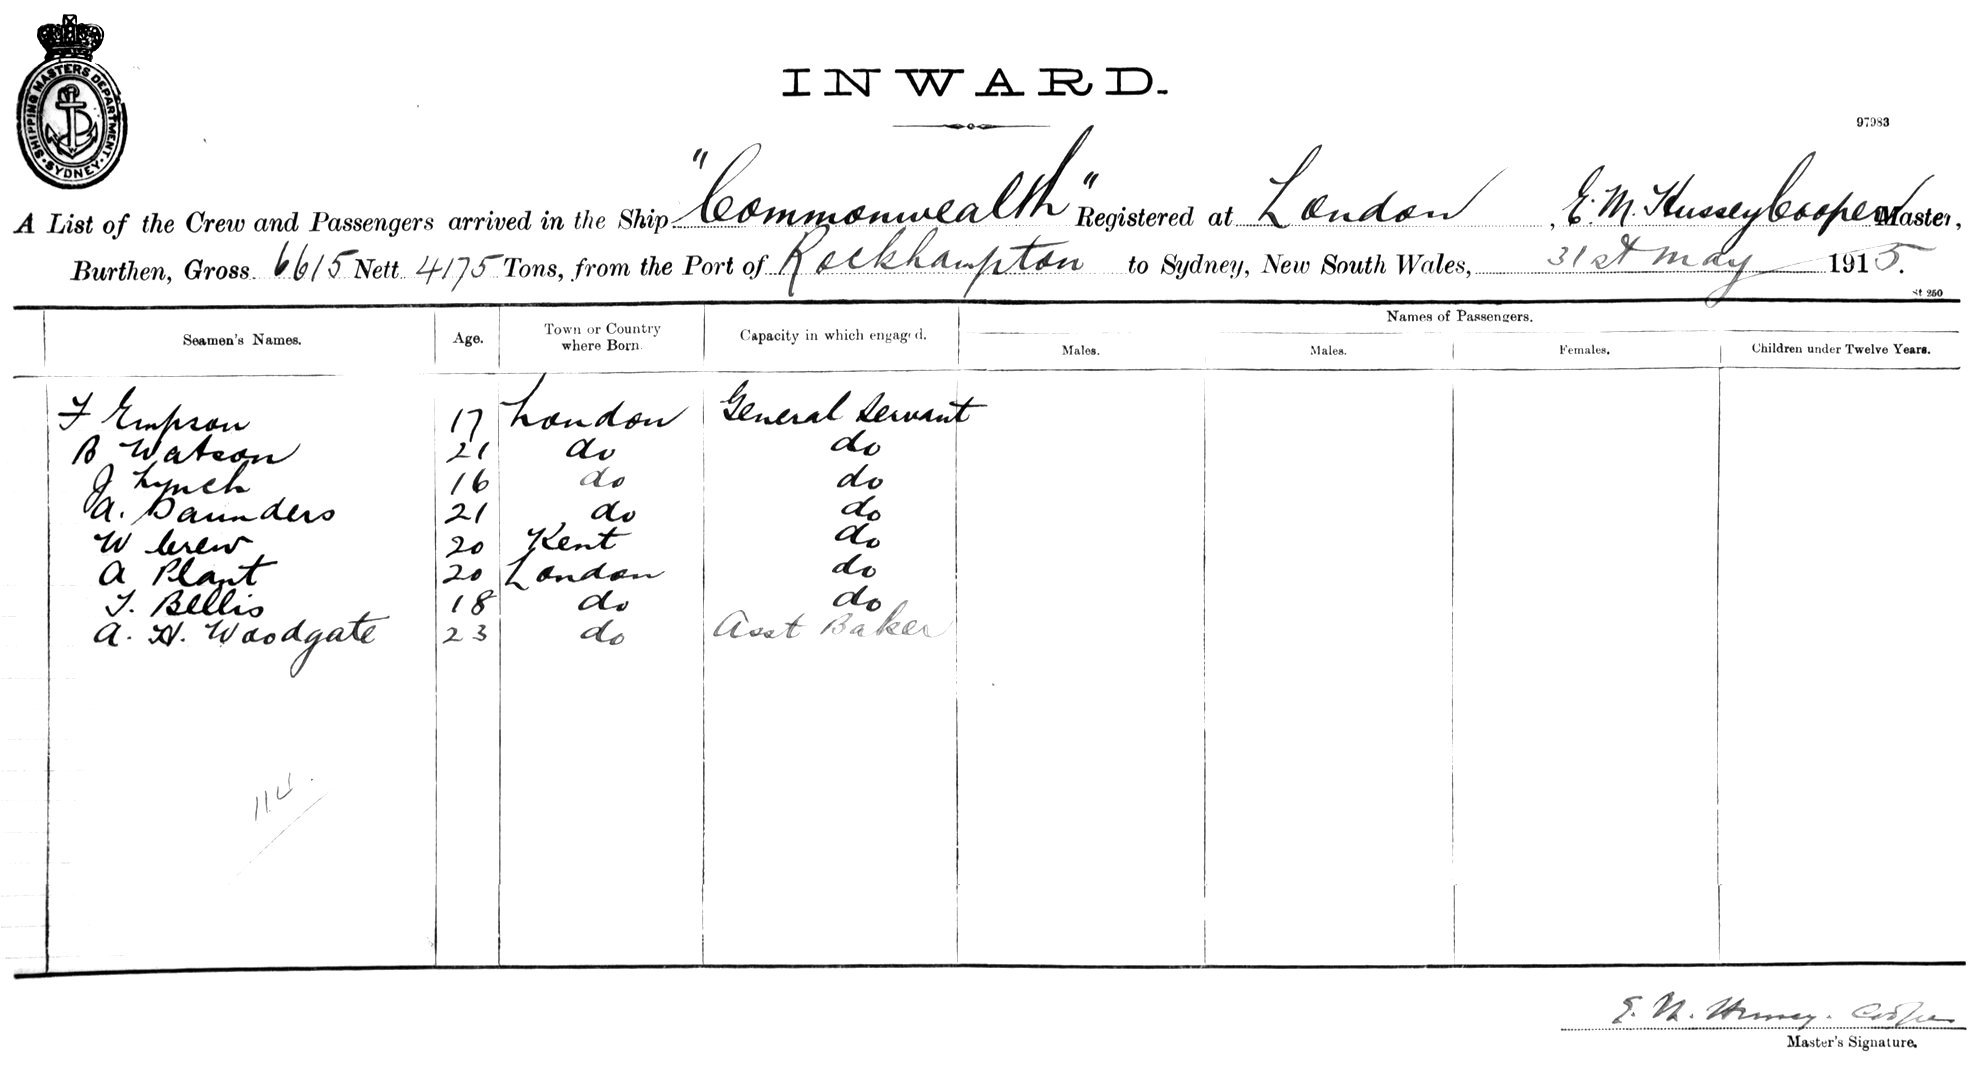 SHIPPING MASTERS DEPARTMENT
SYDNEY
INWARD.
97983
A List of the Crew and Passengers arrived in the Ship "Commonwealth" Registered at London, E. M. Hussey Cooper Master,
Burthen, Gross 6615 Nett 4175 Tons, from the Port of Rockhampton to Sydney, New South Wales, 31st May 1915.
St 250
Seamen's Names. Age. Town or Country where Born. Capacity in which engaged. Names of Passengers.
Males. Males. Females. Children under Twelve Years.
F Empson 17 London General Servant
B Watson 21 do do
J Lynch 16 do do
A. Saunders 21 do do
W Crew 20 Kent do
A Plant 20 London do
T. Bellis 18 do do
A. H. Woodgate 23 do Asst Baker
E. M. Hussey. Cooper
Master's Signature.